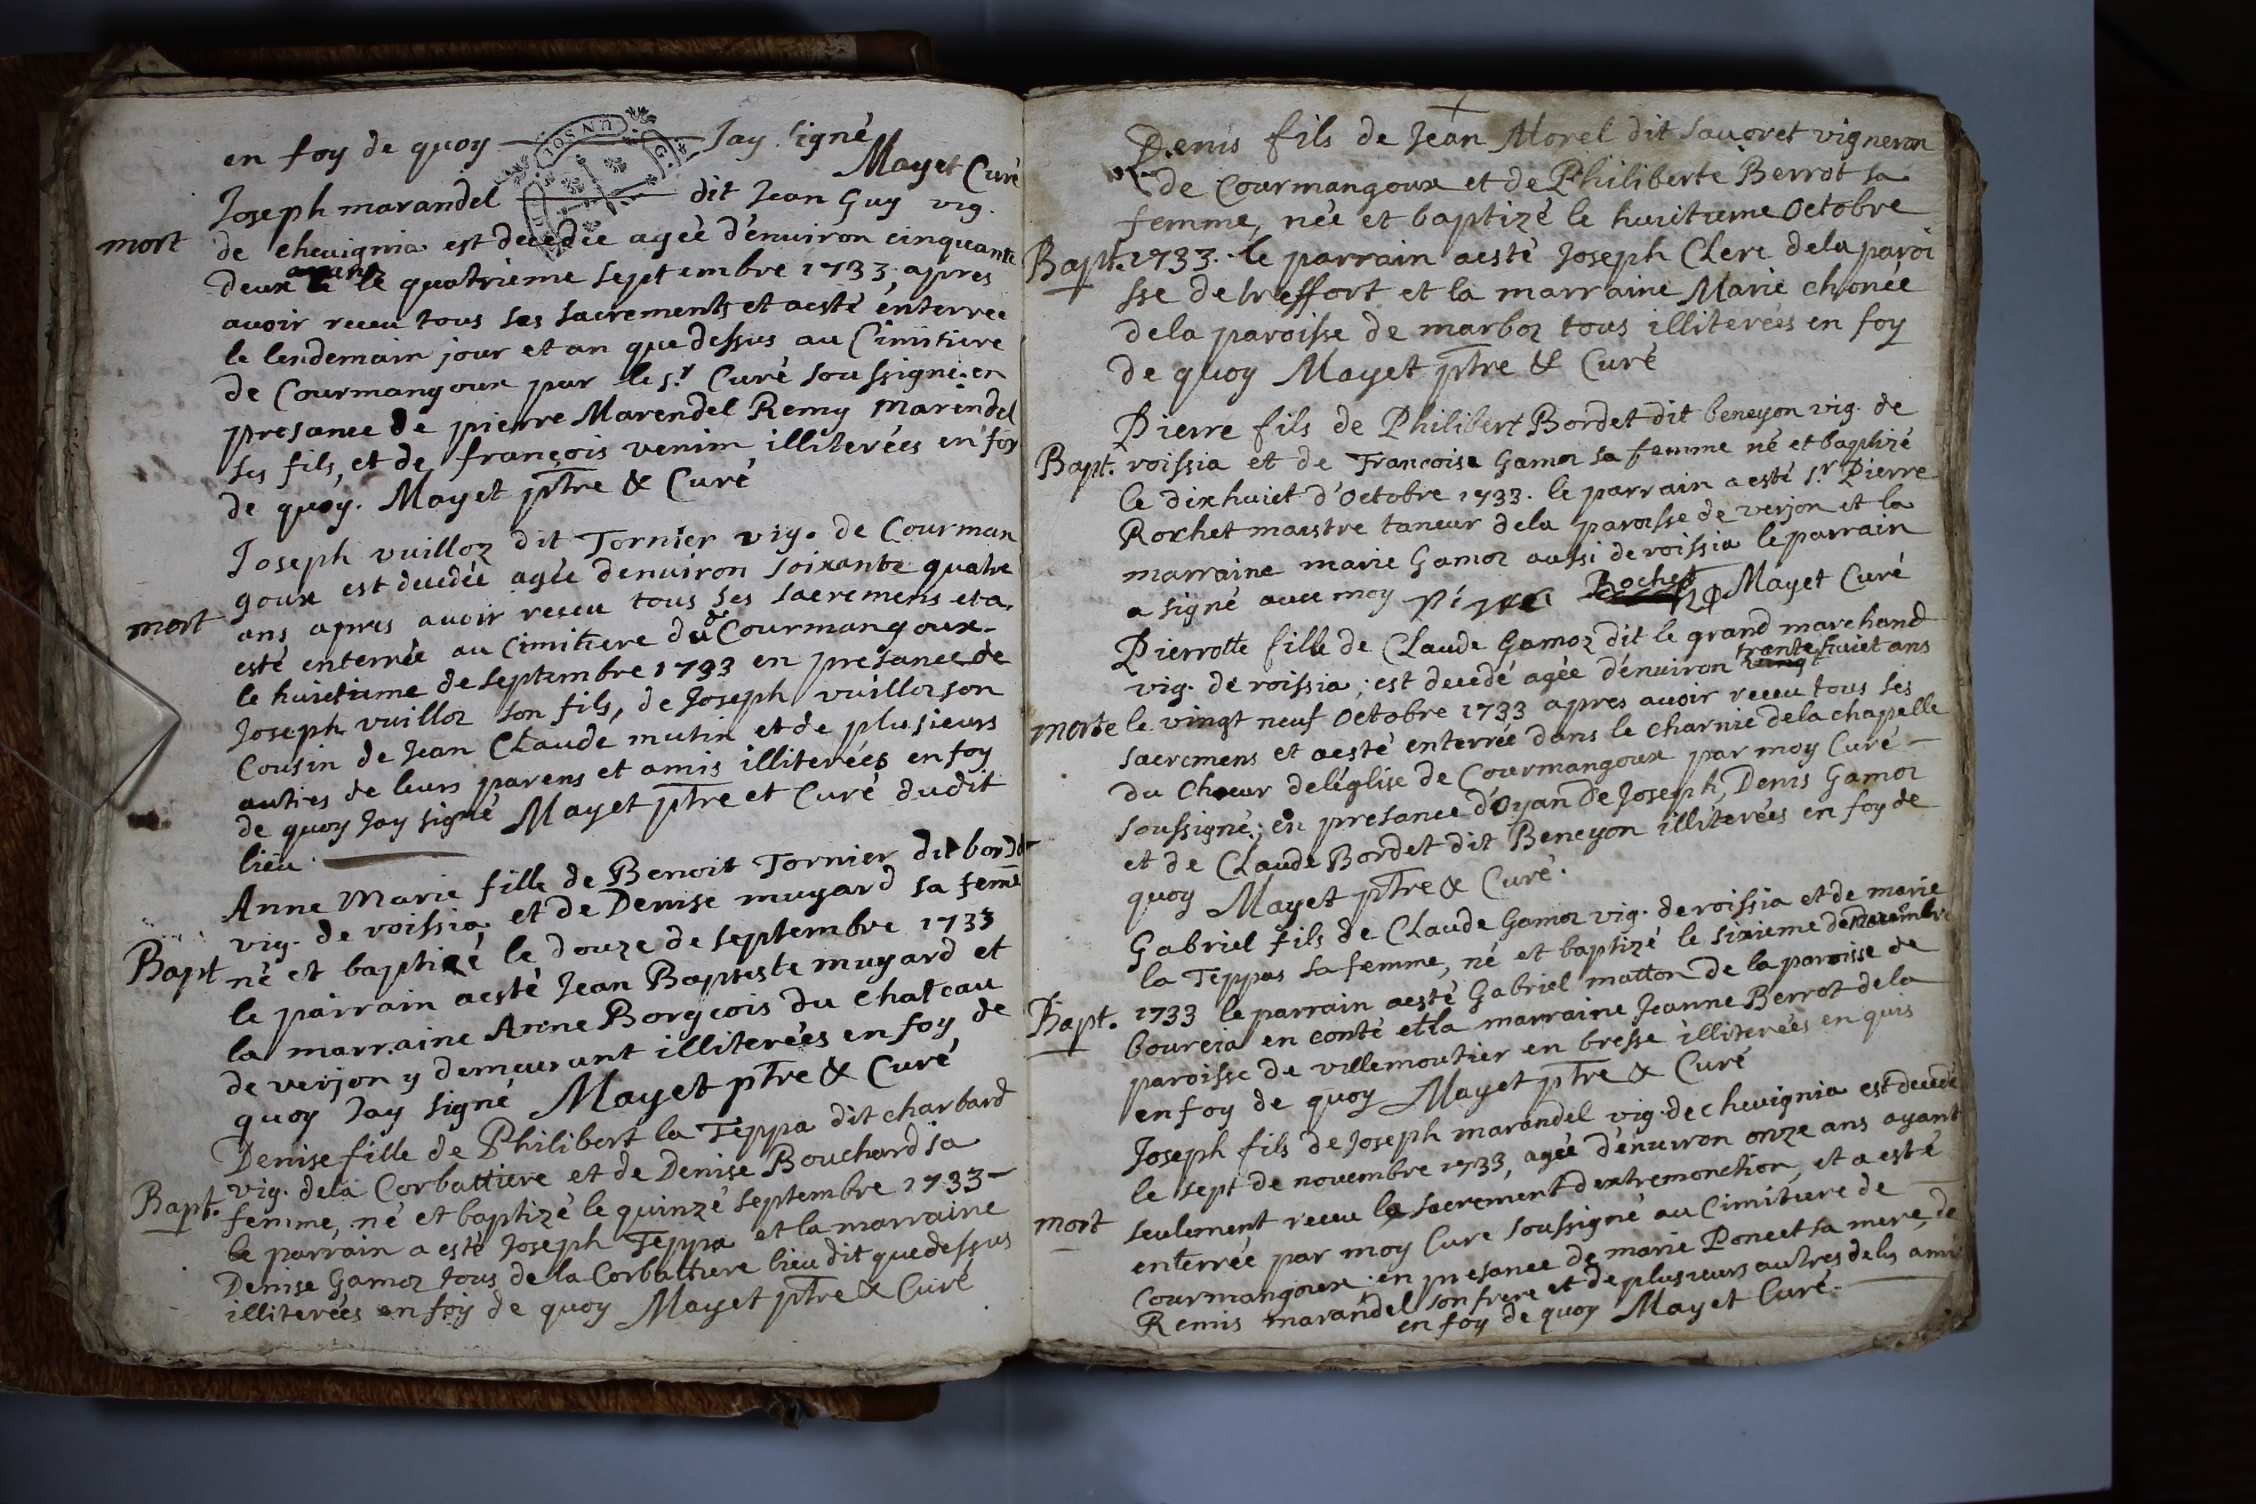 en foy de quoy Jay signé
Mayet Curé
Joseph marandel dit Jean Guy vig.
mort de chevignia est decedée ageé d'énuiron cinquante
deux ans le quatrieme septembre 1733 apres
auoir receu tous ses sacrements et aesté énterree
le lendemain jour et an que dessus au Cimitiere
de Courmangoux par le sr. Curé soussigné en
presance de pierre Marendel Remy Marendel
ses fils, et de françois venim illiterées en foy
de quoy. Mayet ptre & Curé
Joseph vuilloz dit Tornier vig. de Courman
goux est decedée agée denuiron soixante quatre
mort ans apres auoir receu tous ses sacremens et a
esté enterrée au Cimitiere de Courmangoux
le huictieme de septembre 1733 en presance de
Joseph vuilloz son fils, de Joseph vuilloz son
Cousin de Jean Claude mutin et de plusieurs
autres de leurs parens et amis illiterées en foy
de quoy Jay signé Mayet ptre et Curé dudit
lieu
Anne Marie fille de Benoit Tornier dit bordet
vig. de roissia et de Denise muyard sa feme
Bapt né et baptizé le douze de septembre 1733
le parrain aesté Jean Baptiste muyard et
la marraine Anne Borgeois du Chateau
de verjon y demeurant illiterées en foy de
quoy Jay signé Mayet ptre & Curé
Denise fille de Philibert la Teppa dit charbard
vig. dela Corbattiere et de Denise Bouchard sa
Bapt. femme, né et baptizé le quinzé septembre 1733
le parrain a esté Joseph Teppa et la marraine
Denise Gamoz tous de la Corbattiere lieu dit que dessus
illiterées en foy de quoy Mayet ptre & Curé
Denis fils de Jean Morel dit Sauoret vigneron
de Courmangoux et de Philiberte Berrot sa
femme, née et baptizé le huictieme Octobre
Bapt. 1733. le parrain aesté Joseph Clerc dela paroi
sse de treffort et la marraine Marie chonée
dela paroisse de marboz tous illiterées en foy
de quoy Mayet ptre & Curé
Pierre fils de Philibert Bordet dit beneyon vig. de
Bapt. roissia et de Francoise Gamoz sa femme né et baptizé
le dixhuict d'Octobre 1733. le parrain a esté sr. Pierre
Rochet maistre taneur dela paroisse de verjon et la
marraine marie Gamoz aussi de roissia le parrain
a signé auec moy pierre Rochet Mayet Curé
Pierrotte fille de Claude Gamoz dit le grand marchand
vig. de roissia; est decedé agée d'énuiron trante huict ans
morte le vingt neuf Octobre 1733 apres auoir receu tous ses
sacremens et aesté enterrée dans le charnié dela chapelle
du Choeur deléglise de Courmangoux par moy Curé
soussigné; en presance d'Oyan de Joseph, Denis Gamoz
et de Claude Bordet dit Beneyon illiterées en foy de
quoy Mayet ptre & Curé.
Gabriel fils de Claude Gamoz vig. de roissia et de marie
la Teppas sa femme, né et baptizé le sixieme de nouembre
Bapt. 1733 le parrain aesté Gabriel matton de la paroisse de
bourcia en conté et la marraine Jeanne Berrot dela
paroisse de villemoutier en bresse illiterées en quis
en foy de quoy Mayet ptre & Curé
Joseph fils de Joseph marandel vig. de chevignia est decedé
le sept de novembre 1733, agée d'énuiron onze ans ayant
seulement receu le sacrement dextremonction, et a esté
mort enterrée par moy Curé soussigné au Cimitiere de
Courmangoux; en presance de marie Poncet sa mere, de
Remis marandel son frere et de plusieurs autres delrs amis
en foy de quoy Mayet Curé.